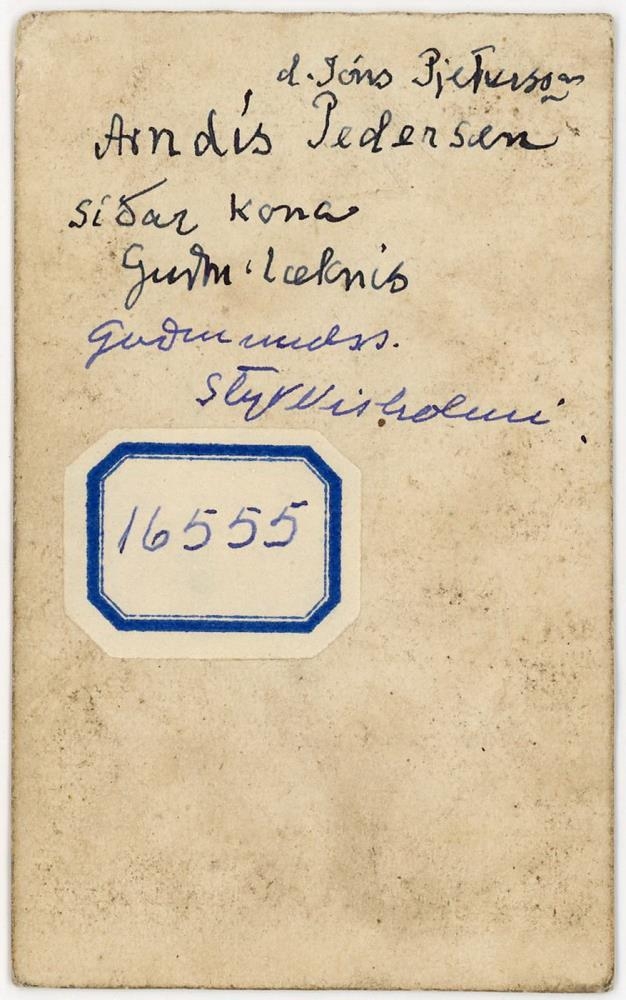 d. Jóns Pjeturson
Arndís Pedersen
síðar kona
Guðm. læknis
Guðmundss.
Stykkishólmi.
16555